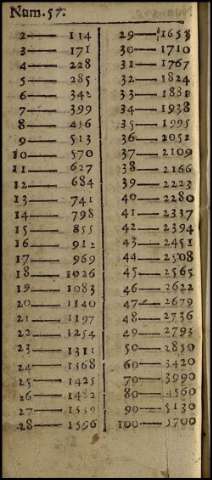 Num. 57.
2 — 114
3 — 171
4 — 228
5 — 285
6 — 342
7 — 399
8 — 456
9 — 513
10 — 570
11 — 627
12 — 684
13 — 741
14 — 798
15 — 855
16 — 912
17 — 969
18 — 1026
19 — 1083
20 — 1140
21 — 1197
22 — 1254
23 — 1311
24 — 1368
25 — 1425
26 — 1482
27 — 1539
28 — 1596
29 — 1653
30 — 1710
31 — 1767
32 — 1824
33 — 1881
34 — 1938
35 — 1995
36 — 2052
37 — 2109
38 — 2166
39 — 2223
40 — 2280
41 — 2337
42 — 2394
43 — 2451
44 — 2508
45 — 2565
46 — 2622
47 — 2679
48 — 2736
49 — 2793
50 — 2850
60 — 3420
70 — 3990
80 — 4560
90 — 5130
100 — 5700